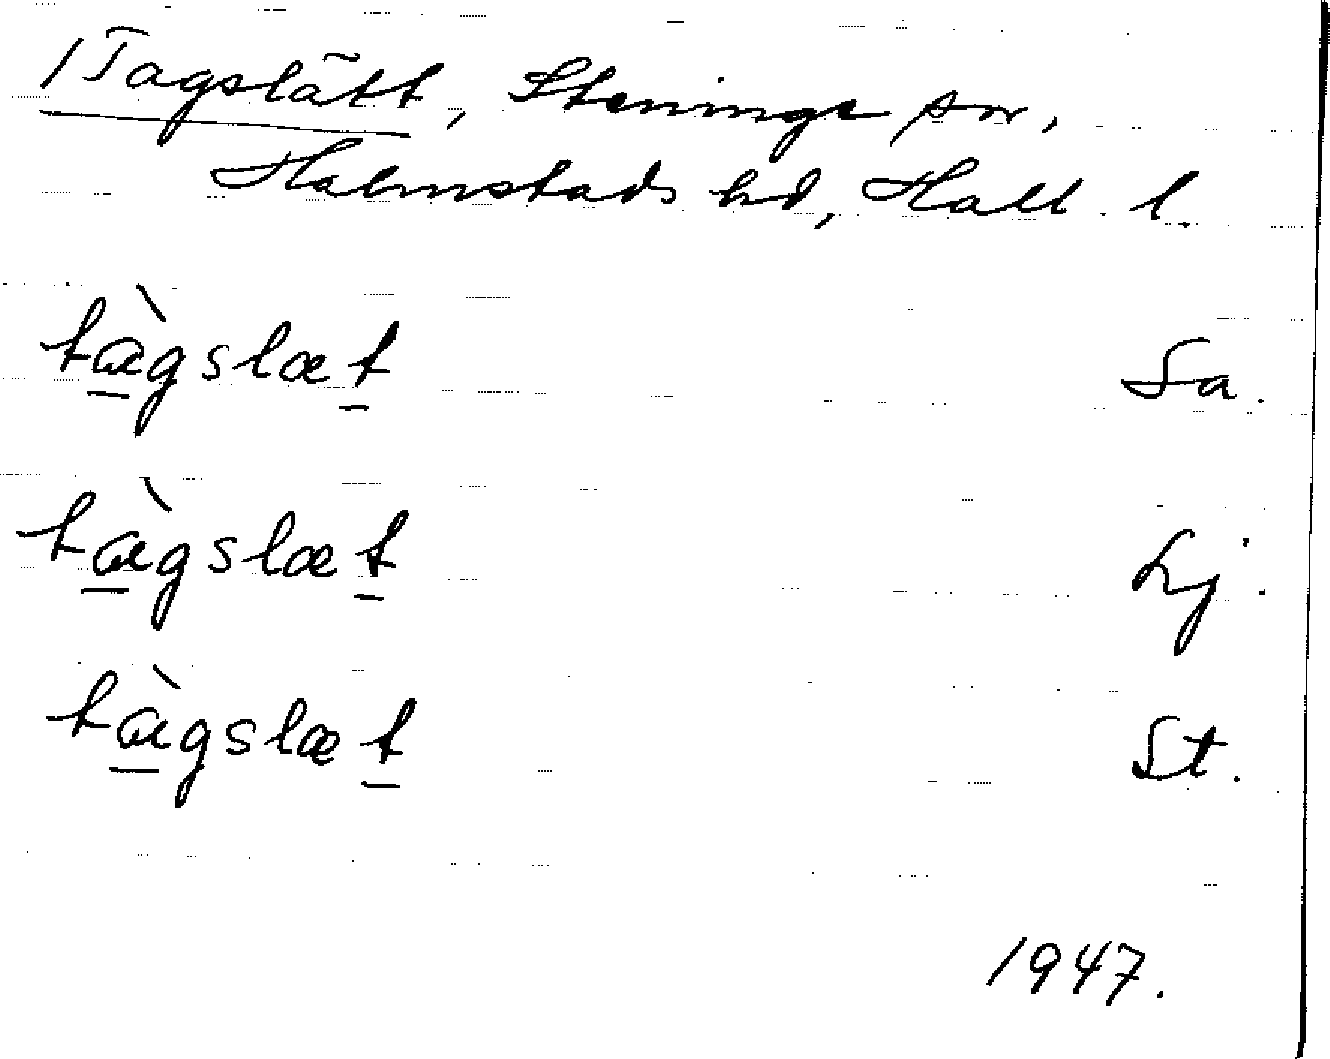 /Tagslätt, Steninge sn,
Halmstads hd, Hall. l.
tàgslæt Sa.
tàgslæt Lj.
tàgslæt St.
1947.